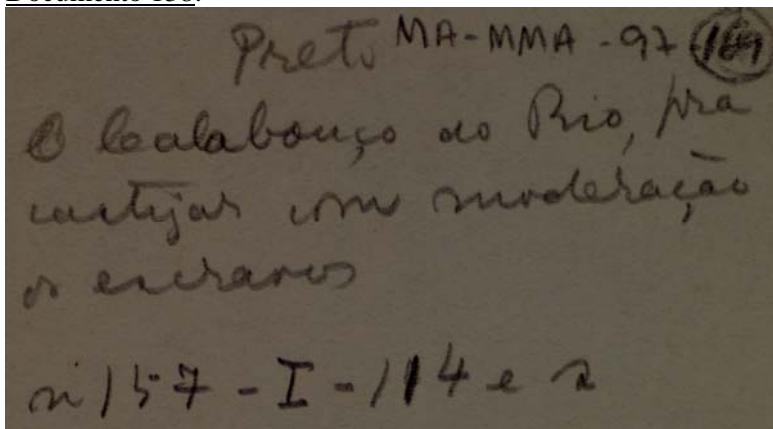 Preto MA-MMA-97-169
O Calabouço do Rio, pra
castigar com moderação
os escravos
n 157 - I - 114 e s